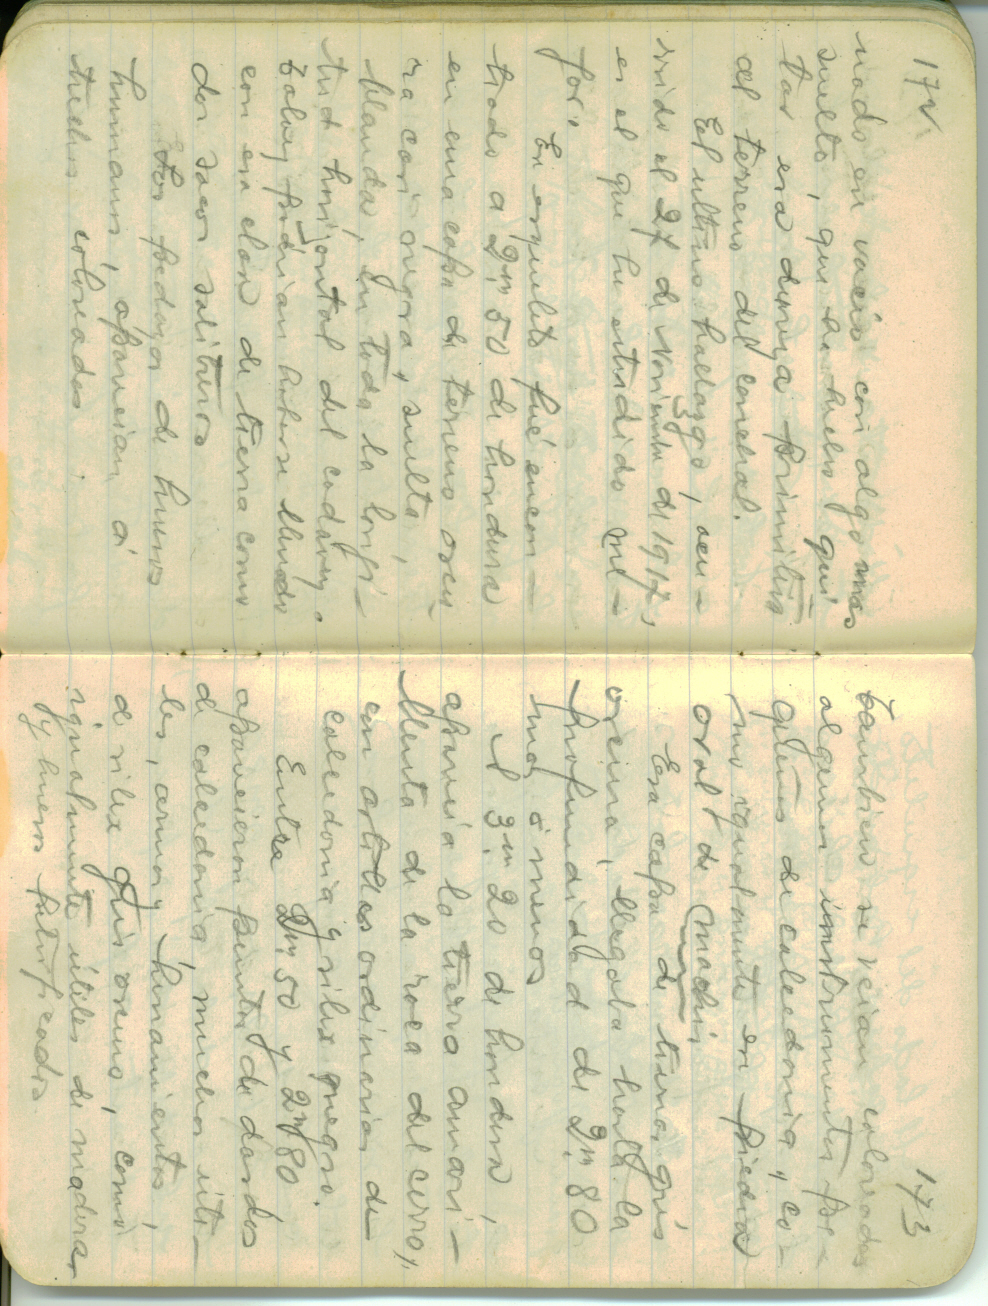 172
nado en vacío con algo mas
suelto, que ha hecho qui-
tar esa dureza primitiva
al terreno del conchal.
El ultimo hallazgo, ocu-
rrido el 27 de Noviembre de 1917,
es el que he estudiado me-
jor.
En esqueleto fué encon-
trado a 2m,50 de hondura
en una capa de terreno oscu-
ra casi negra, suelta
blanda, en toda la longi-
tud horizontal del cadáver.
Talvez podrian haberse llenado
con esa clase de tierra como
dos sacos salitreros
Los pedazos de huesos
humanos, aparecian á
trechos colorados
173
Tambien se veian colorados
algunos instrumentos pe-
queños de calcedonia, co-
mo igualmente en piedra
oval de machi,
Esa capa de tierra gris
oscura, llegaba hasta la
profundidad de 2m,80
mas ó menos
A 3m,20 de hondura,
aparecia la tierra amari-
llenta de la roca del cerro,
con astillas ordinarias de
calcedonia y silex negro.
Entre 2m,50 y 2m,80
aparecieron puntas de dardos
de calcedonia, muchos úti-
les, armas y herramientas,
de silex gris oscuro, como
igualmente útiles de madera,
y huesos petrificados.